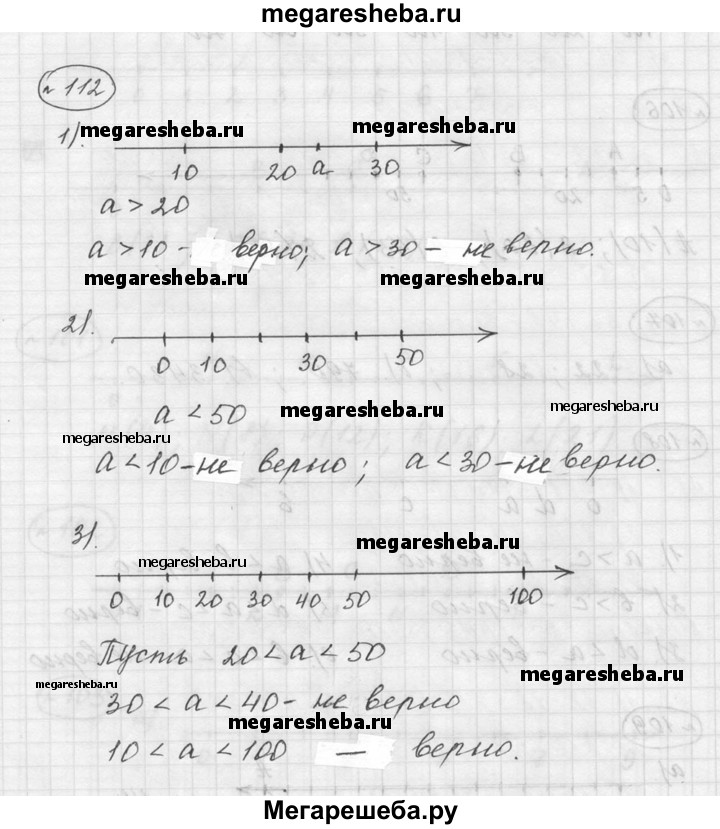 megaresheba.ru
№ 112
1). megaresheba.ru megaresheba.ru
10 20 a 30
a > 20
a > 10 - верно; a > 30 - не верно.
megaresheba.ru megaresheba.ru
2).
0 10 30 50
a < 50 megaresheba.ru megaresheba.ru
megaresheba.ru
a < 10 - не верно; a < 30 - не верно.
3). megaresheba.ru
megaresheba.ru
0 10 20 30 40 50 100
Пусть 20 < a < 50
megaresheba.ru megaresheba.ru
30 < a < 40 - не верно
megaresheba.ru
10 < a < 100 — верно.
Мегарешеба.ру